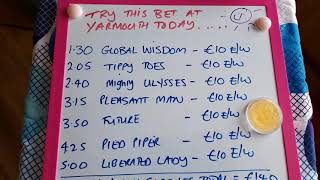 TRY THIS BET AT
YARMOUTH TODAY.....
1.30 GLOBAL WISDOM - £10 E/W
2.05 TIPPY TOES - £10 E/W
2.40 MIGHTY ULYSSES - £10 E/W
3.15 PLEASANT MAN - £10 E/W
3.50 FUTURE - £10 E/W
4.25 PIED PIPER - £10 E/W
5.00 LIBERATED LADY - £10 E/W
TODAY = £140